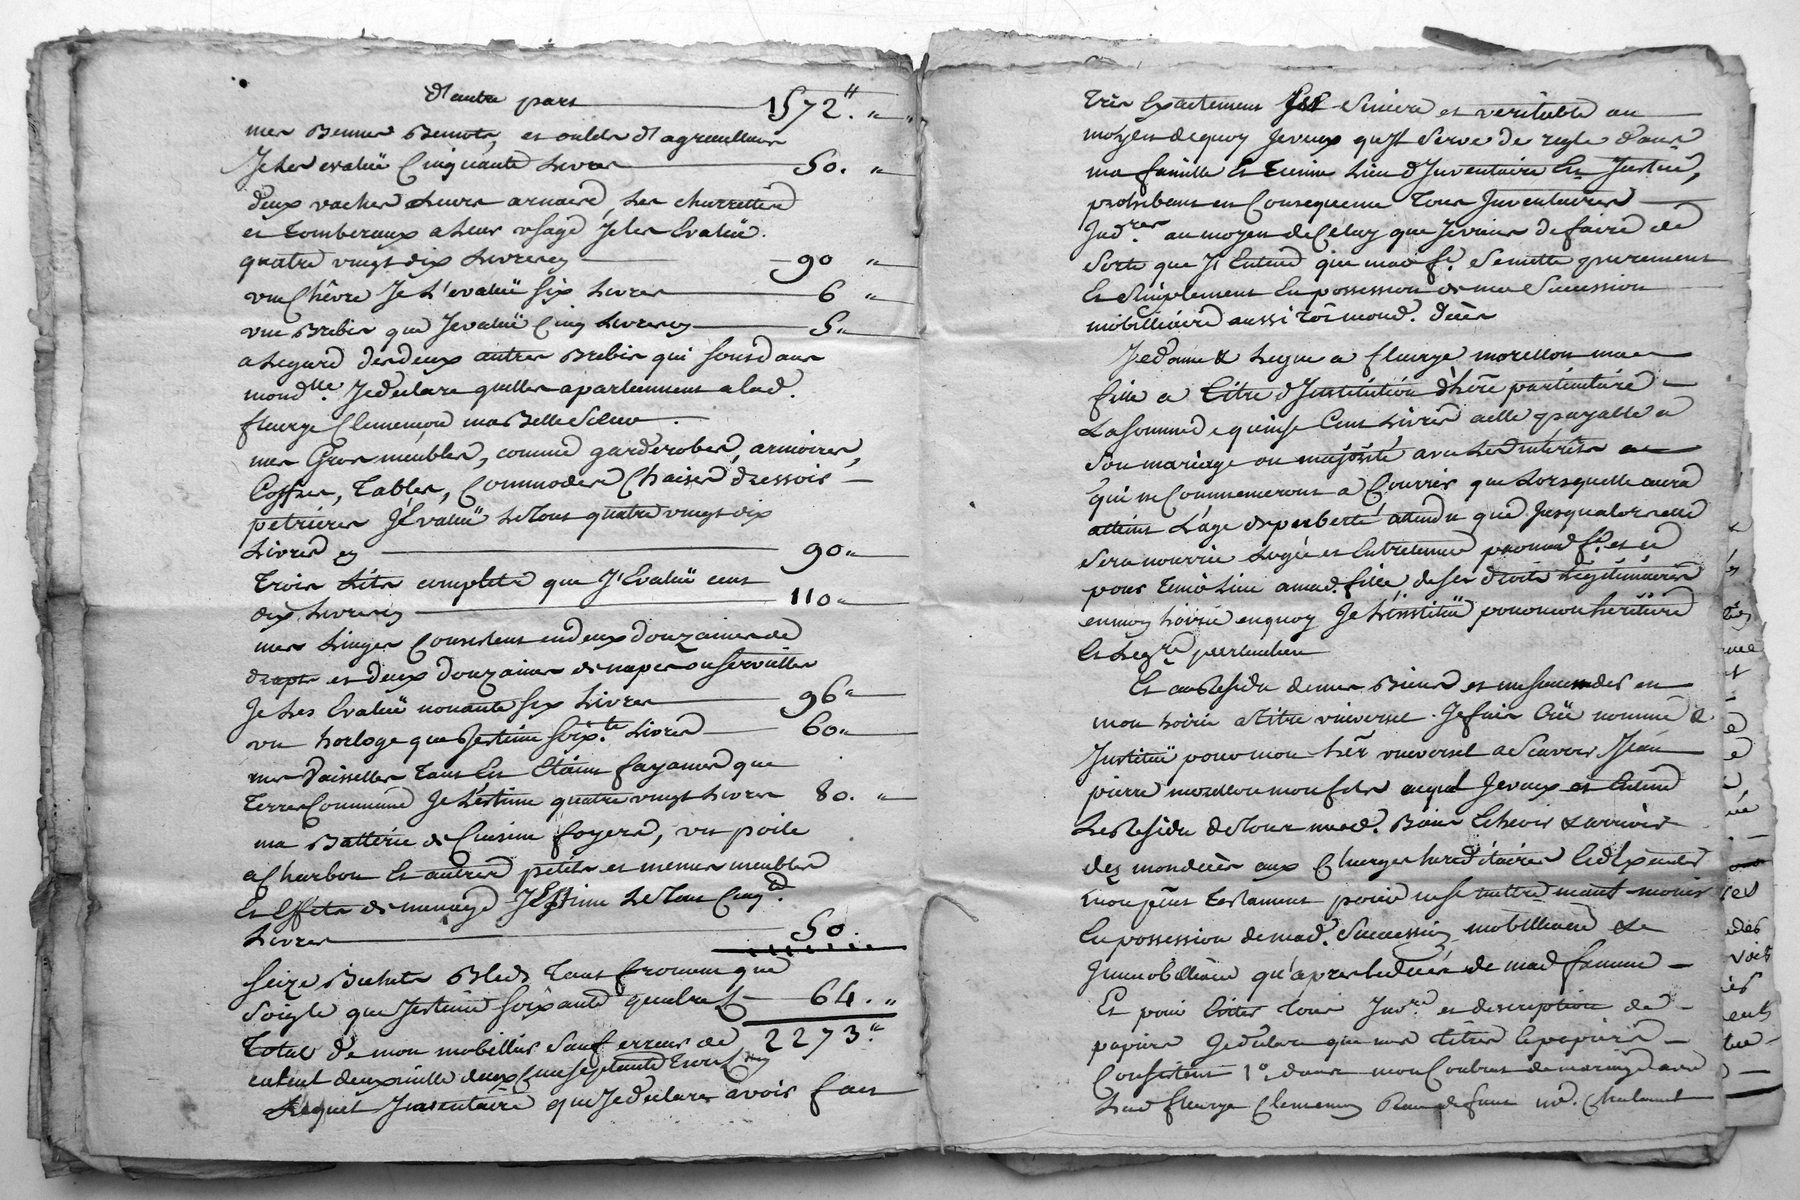 d'autre part 1572.# "
mes Bennes Bennots, et outils d'agriculture
Je les evaluë Cinquante Livres 50. "
deux vaches Leurs arnaire, Les charrettes
et Tomberaux a Leur usage Je les Evaluë
quatre vingt dix Livres cy 90 "
une Chêvre Je L'evaluë six Livres 6 "
une Brebis que J'evaluë Cinq Livres cy 5 "
a Legard des deux autres Brebis qui sont dans
mond.lle Je declare quelles apartiennent a lad.
fleurye Clemençon ma Belle Sœur
mes Gros meubles, comme garderobes, armoires,
Coffres, Tables, Commodes Chaises dressoir
petrieres J'Evaluë Le Tout quatre vingt dix
Livres cy 90 "
Trois Lits complets que J'Evaluë cent
dix Livres cy 110 "
mes Linges Consistent en deux douzaines de
draps et deux douzaines de napes ou serviettes
Je Les Evaluë nonante six Livres 96 "
un horloge que J'estime soix.te Livres 60 "
mes Vaisselles Tant En Etaim fayance que
Terre Commune Je L'estime quatre vingt Livres 80. "
ma Batterie de Cuisine foyere, un poile
a Charbon Et autres petits et menus meubles
Et Effets de menage J'Estime Le Tout Cinq.te
Livres 50.
Seize Bichets Bled Tant froment que
Soigle que J'estime soixante quatre # 64. "
Total de mon mobillier Sauf erreur de 2273 "
calcul deux mille deux Cent septante Trois # cy
Lequel Inventaire que Je declare avoir fait
Très Exactement Est Sincere et veritable au
moyen de quoy Je veux qu'Il Serve de regle dans
ma famille Et Tienne Lieu d'Inventaire En Justice,
prohibant en Consequence Tous Inventaires
Jud.res au moyen de Celuy que Je viens de faire de
Sorte que J'Entend que mad. f.e Se mette purement
Et Simplement En possession de ma Succession
mobilliaire aussi Tôt mond. decès
Je donne & Legue a fleurye morellon ma
fille a Titre d'Institution d'hére particuliere
La Somme de quinse Cent Livres a elle payable a
Son mariage ou majorité avec Les Interêts
qui ne Commenceront a Courrir que Lorsquelle aura
atteint L'age de puberté attendu que Jusqu'alors elle
Sera nourrie Logée et Entretenue par mad f.e et ce
pour Tenir Lieu a mad. fille de ses droits Légitimaires
en mon hoirie en quoy Je L'institüe pour mon heritiere
Et Leg.re particuliere
Et au Résidu de mes Biens et meubles en
mon hoirie a Titre universel Je fais Créé nommé &
Institüe pour mon hér universel a Scavoir Jean
pierre morellon mon fils auquel Je veux et Entend
Le Résidu de Tous mesd. Biens Echeoir & arriver
dez mon decès aux Charges hereditaires Et d'Executer
mon p̃nt Testament pour ne se mettre neant-moins
En possession de mad. Succession mobilliaire &
Immobilliaire qu'apres le decès de mad femme
Et pour Eviter Tous Inv.re et description de
papiers Je declare que mes titres Et papiers
Consistent 1° dans mon Contrat de mariage avec
Lad fleurye Clemençon Reçu defunt m.e Chalumet